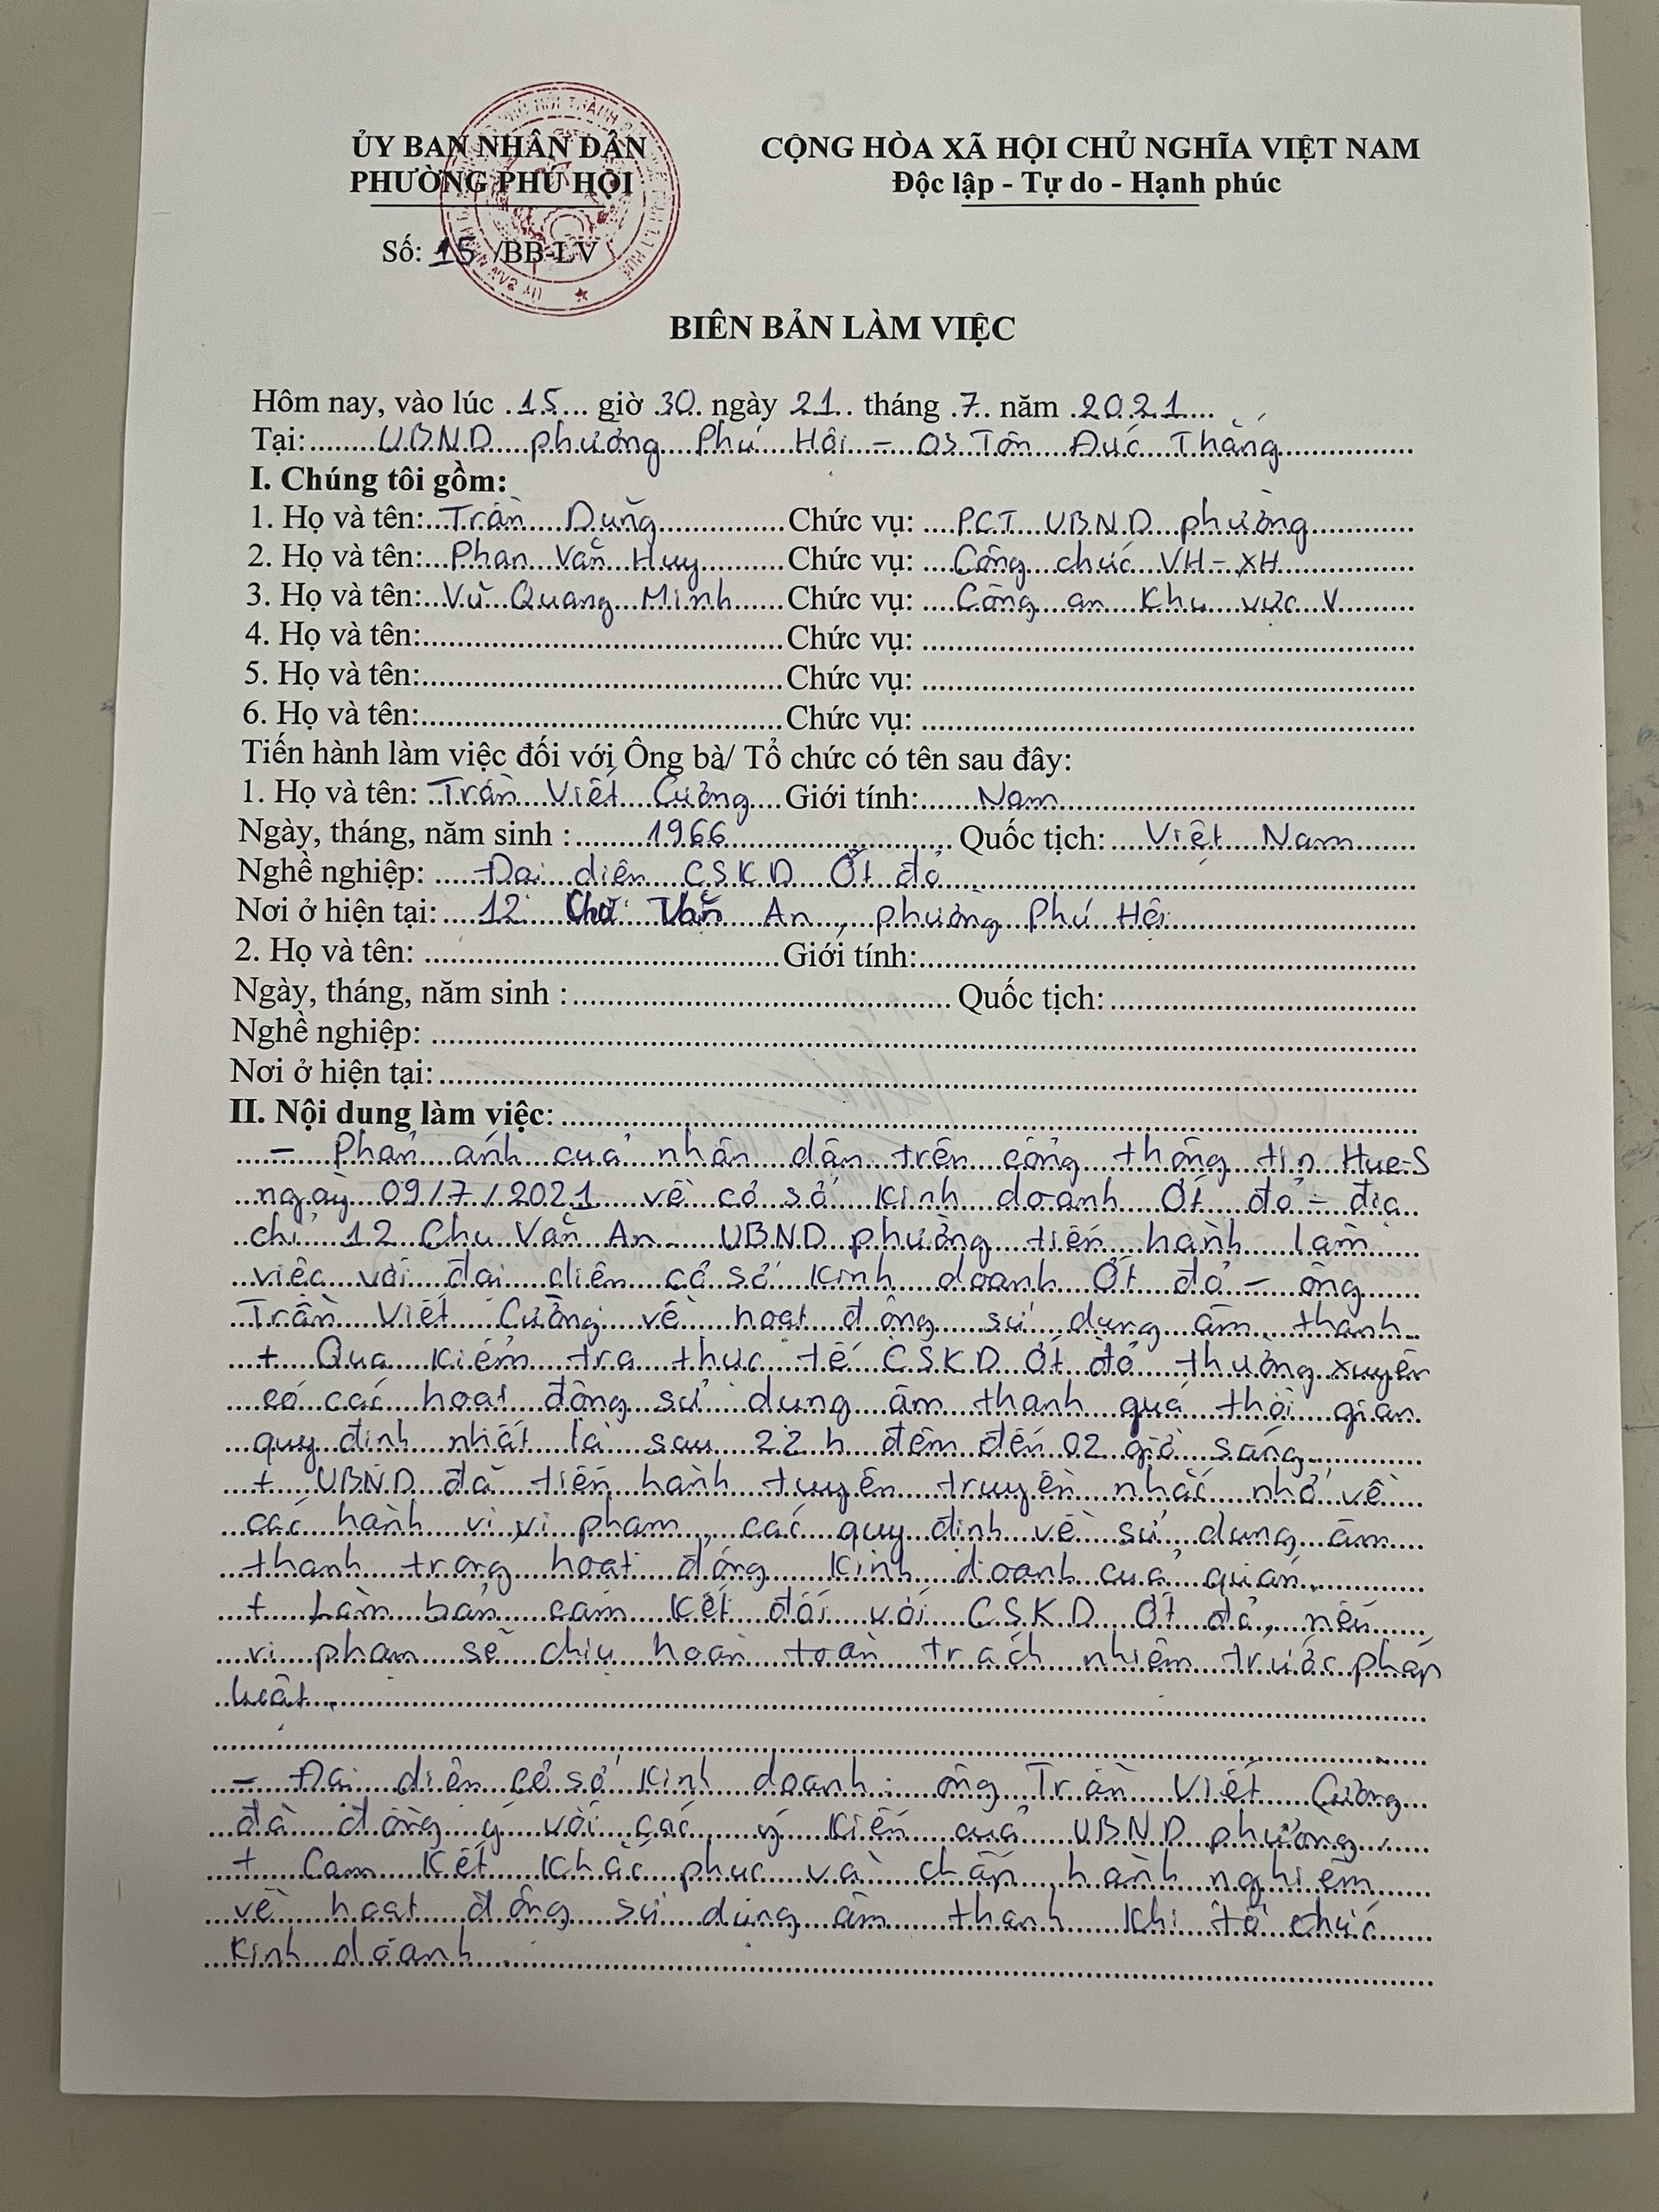 ỦY BAN NHÂN DÂN
PHƯỜNG PHÚ HỘI
Số: 15 /BB-LV
CỘNG HÒA XÃ HỘI CHỦ NGHĨA VIỆT NAM
Độc lập - Tự do - Hạnh phúc
BIÊN BẢN LÀM VIỆC
Hôm nay, vào lúc 15 giờ 30 ngày 21 tháng 7 năm 2021
Tại: UBND phường Phú Hội - 03 Tôn Đức Thắng
I. Chúng tôi gồm:
1. Họ và tên: Trần Dũng Chức vụ: PCT UBND phường
2. Họ và tên: Phan Văn Huy Chức vụ: Công chức VH-XH
3. Họ và tên: Vũ Quang Minh Chức vụ: Công an Khu vực V
4. Họ và tên: Chức vụ:
5. Họ và tên: Chức vụ:
6. Họ và tên: Chức vụ:
Tiến hành làm việc đối với Ông bà/ Tổ chức có tên sau đây:
1. Họ và tên: Trần Viết Cường Giới tính: Nam
Ngày, tháng, năm sinh : 1966 Quốc tịch: Việt Nam
Nghề nghiệp: Đại diện CSKD Ớt đỏ
Nơi ở hiện tại: 12 Chu Văn An, phường Phú Hội
2. Họ và tên: Giới tính:
Ngày, tháng, năm sinh : Quốc tịch:
Nghề nghiệp:
Nơi ở hiện tại:
II. Nội dung làm việc:
- Phản ánh của nhân dân trên cổng thông tin Hue-S
ngày 09/7/2021 về cơ sở kinh doanh Ớt đỏ - địa
chỉ 12 Chu Văn An. UBND phường tiến hành làm
việc với đại diện cơ sở kinh doanh Ớt đỏ - ông
Trần Viết Cường về hoạt động sử dụng âm thanh.
+ Qua kiểm tra thực tế CSKD Ớt đỏ thường xuyên
có các hoạt động sử dụng âm thanh quá thời gian
quy định nhất là sau 22h đêm đến 02 giờ sáng.
+ UBND đã tiến hành tuyên truyền nhắc nhở về
các hành vi vi phạm, các quy định về sử dụng âm
thanh trong hoạt động kinh doanh của quán.
+ Làm bản cam kết đối với CSKD Ớt đỏ, nếu
vi phạm sẽ chịu hoàn toàn trách nhiệm trước pháp
luật.
- Đại diện cơ sở kinh doanh: ông Trần Viết Cường
đã đồng ý với các ý kiến của UBND phường.
+ Cam kết khắc phục và chấp hành nghiêm
về hoạt động sử dụng âm thanh khi tổ chức
kinh doanh.